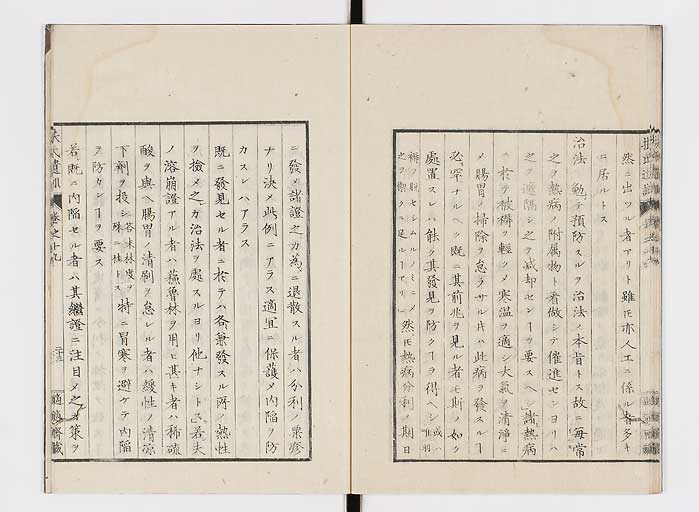 然ニ出ツル者アリト雖モ亦人工ニ係ル者多キ
ニ居ルトス
治法 勉テ預防スルヲ治法ノ本旨トス故ニ毎常
之ヲ熱病ノ附属物ト看做シテ催進センヨリハ
之ヲ遮隔シ之ヲ減却センヿヲ要スヘシ諸熱病
ニ於テ被褥ヲ輕クシメ寒温ヲ適シ大氣ヲ清淨ニ
メ腸胃ノ掃除ヲ怠ラサル片ハ此病ヲ發スルヿ
必罕ナルヘシ既ニ其前兆ヲ見ル者モ斯ノ如ク
處置スレハ能ク其發見ヲ防クヿヲ得ヘシ或ハ
然モ熱病分利ノ期日
ニ發メ諸證之カ為ニ退散スル者ハ分利ノ粟疹
ナリ決メ此例ニアラス適宜ニ保護メ内陥ヲ防
カスンハアラス
既ニ發見セル者ニ於テハ各兼發スル所ノ熱性
ヲ檢メ之カ治法ヲ處スルヨリ他ナシトス若夫
ノ溶崩證アル者ハ蘓魯林ヲ用ヒ甚キ者ハ稀硫
酸ヲ與ヘ腸胃清刷ヲ怠レル者ハ緩性ノ清涼
下劑ヲ投シ答末林度ヲ殊ニ佳トス特ニ冒寒ヲ避ケテ内陥
ヲ防カンヿヲ要ス
若既ニ内陥セル者ハ其繼證ニ注目メ之カ策ヲ
扶氏遺訓 巻之十九
二十三
適適齋藏